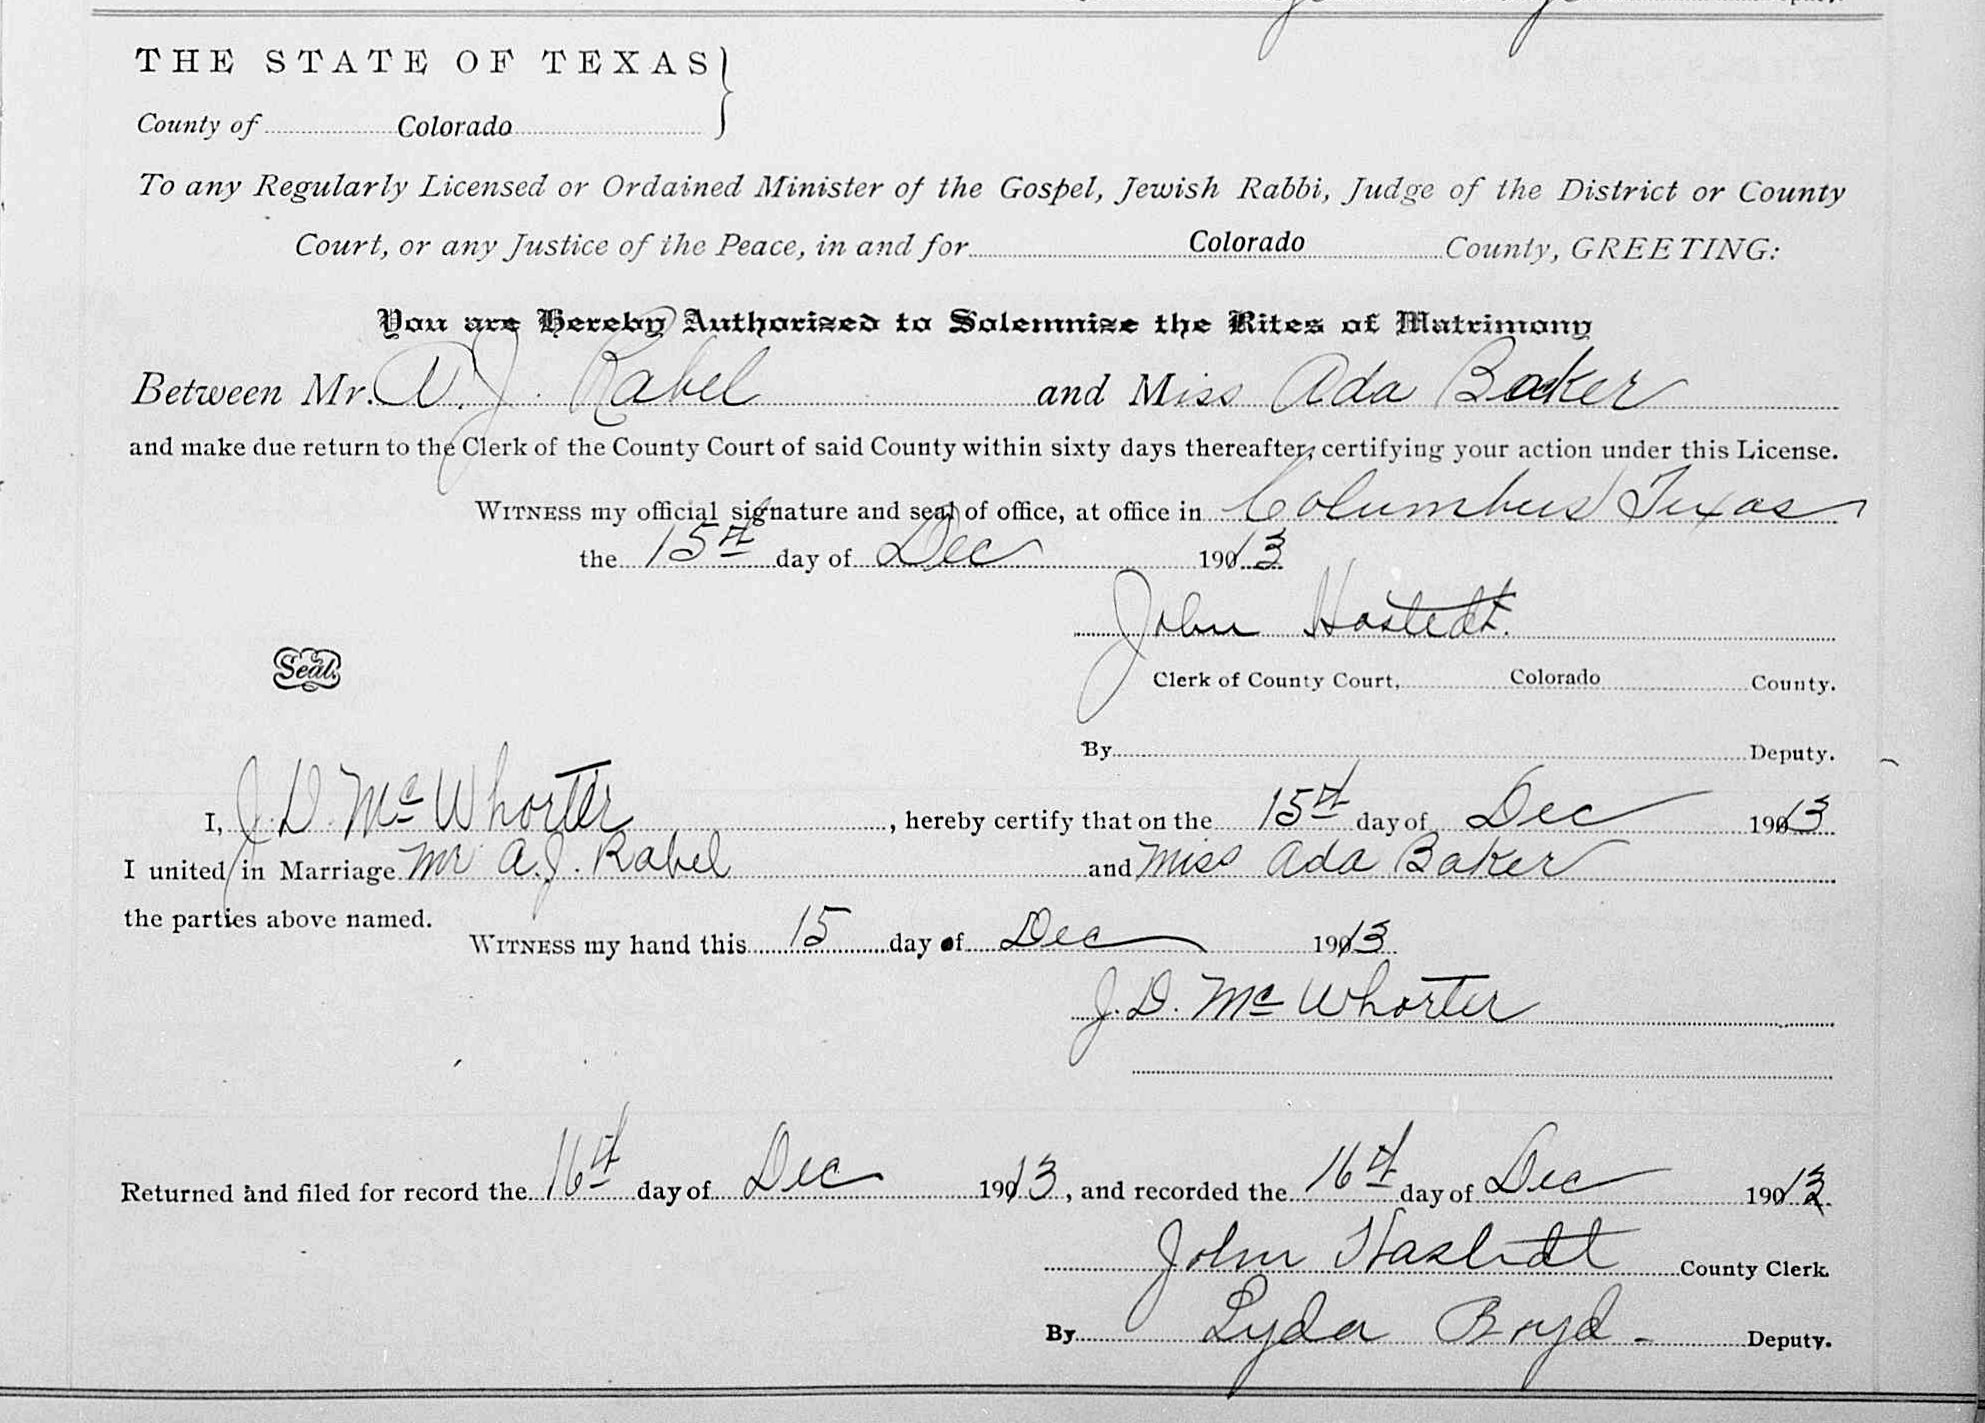 THE STATE OF TEXAS
County of Colorado
To any Regularly Licensed or Ordained Minister of the Gospel, Jewish Rabbi, Judge of the District or County
Court, or any Justice of the Peace, in and for Colorado County, GREETING:
You are Hereby Authorized to Solemnize the Rites of Matrimony
Between Mr. A. J. Rabel and Miss Ada Baker
and make due return to the Clerk of the County Court of said County within sixty days thereafter, certifying your action under this License.
WITNESS my official signature and seal of office, at office in Columbus Texas
the 15th day of Dec 1913
John Hastedt.
Seal.
Clerk of County Court, Colorado County.
By Deputy.
I, J. D. McWhorter, hereby certify that on the 15th day of Dec 1913
I united in Marriage Mr A. J. Rabel and Miss Ada Baker
the parties above named.
WITNESS my hand this 15 day of Dec 1913
J. D. McWhorter
Returned and filed for record the 16th day of Dec 1913, and recorded the 16th day of Dec 1913.
John Hastedt County Clerk.
By Lyda Boyd - Deputy.